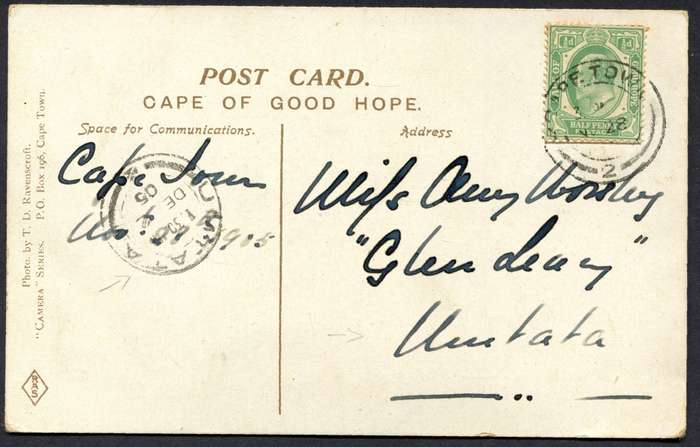 POST CARD.
CAPE OF GOOD HOPE.
Space for Communications.
Address
Cape Town
Nov. 1905
Miss Amy
"Glen
Umtata
Photo. by T. D. Ravenscroft.
"CAMERA" SERIES. P.O. Box 196, Cape Town.
½d
½d
HALF PENNY
POSTAGE
CAPE TOWN
2
UMTATA
1.30
DE
05